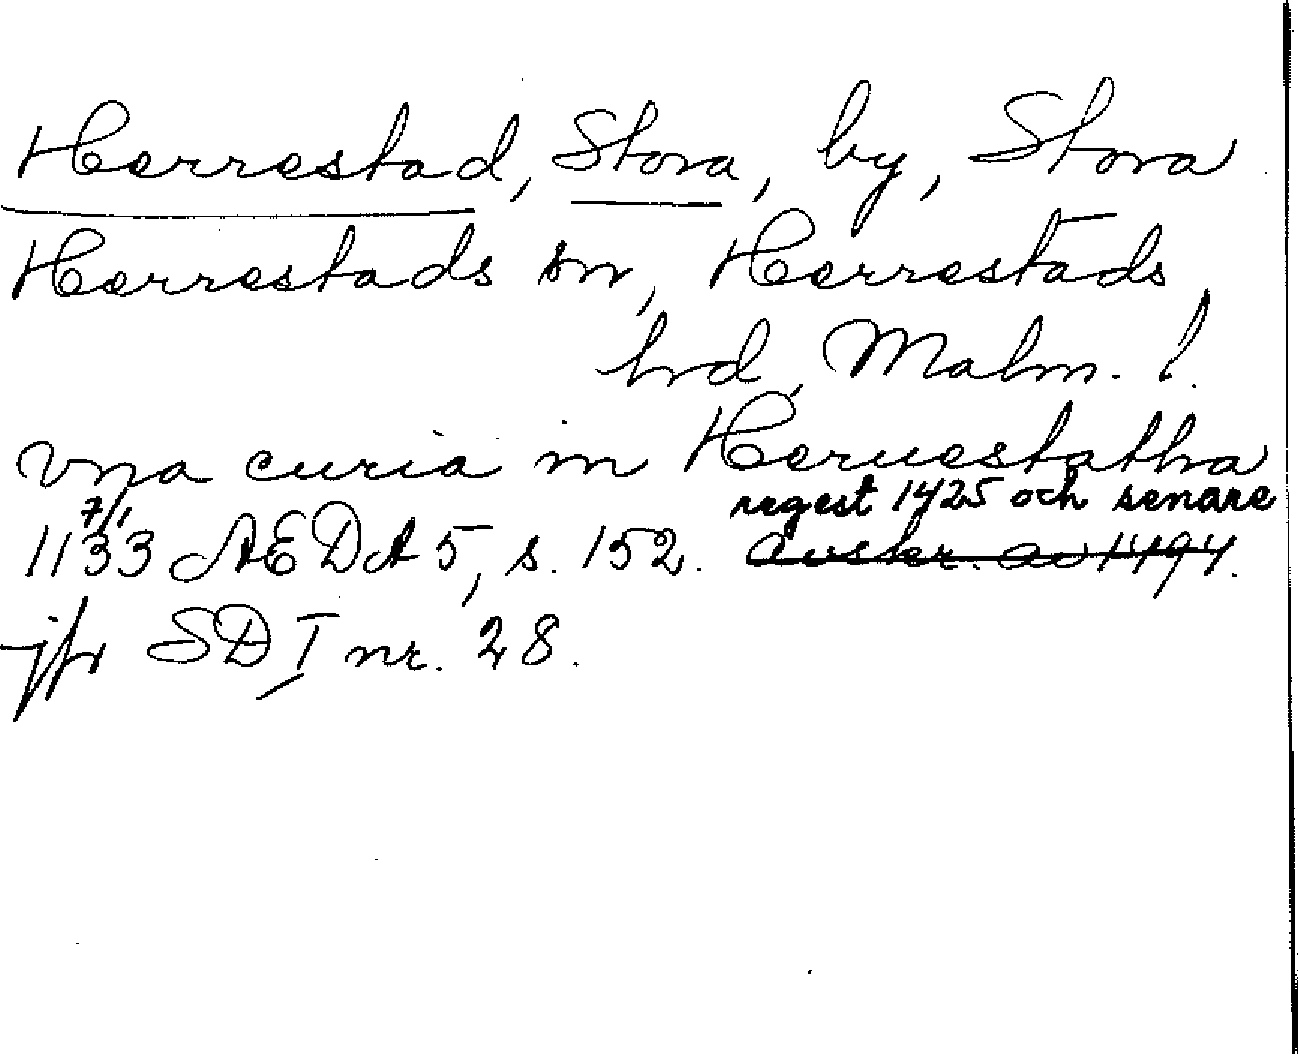 Herrestad, Stora, by, Stora
Herrestads sn, Herrestads
hd, Malm. l.
vna curia in Heruestatha
regest 1425 och senare
1133 7/1 AEDA 5, s. 152. Avskr. av 1494.
jfr SD I nr. 28.